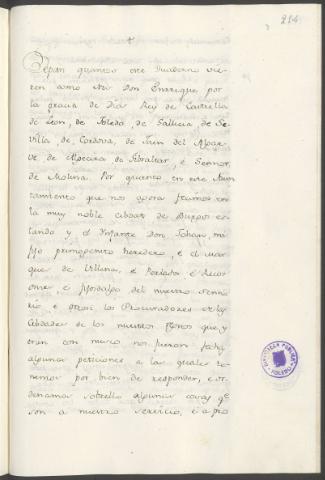 214
Sepan quantos este Quaderno vie-
ren como Nós Don Enrrique por
la gracia de Dios Rey de Castilla
de Leon, de Toledo, de Gallicia, de Se-
villa, de Cordova, de Jaen del Algar-
ve, de Algecira de Gibraltar, é Sennor
de Molina. Por quanto en este Aiun-
tamiento que nos agora fecimos en
la muy noble cibdat de Burgos es-
tando y el Infante Don Johan mi
fijo primogenito heredero, é el mar-
ques de Villena, é Perlados é Ricos
omes, é Fijosdalgo del nuestro Sennо-
rio é otrosi los Procuradores de las
Cibdades de los nuestros Regnos que y
eran con nusco nos fueron fechas
algunas peticiones a las quales te-
nemos por bien de responder, é or-
denamos sobrello algunas cosas qe
son a nuestro servicio, é a pro
BIBLIOTECA PUBLICA
TOLEDO